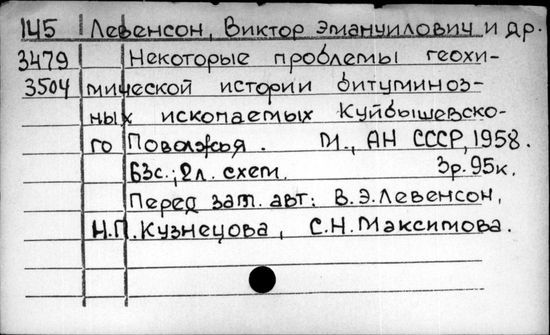 145 Левенсон, Виктор Эмануилович и др.
3479 Некоторые проблемы геохи-
3504 мической истории битуминоз-
ных ископаемых Куйбышевско-
го Поволжья. М., АН СССР, 1958.
63с.; 2л. схем. 3р. 95к.
Перед заг. авт: В.Э.Левенсон,
Н.П.Кузнецова, С.Н.Максимова.